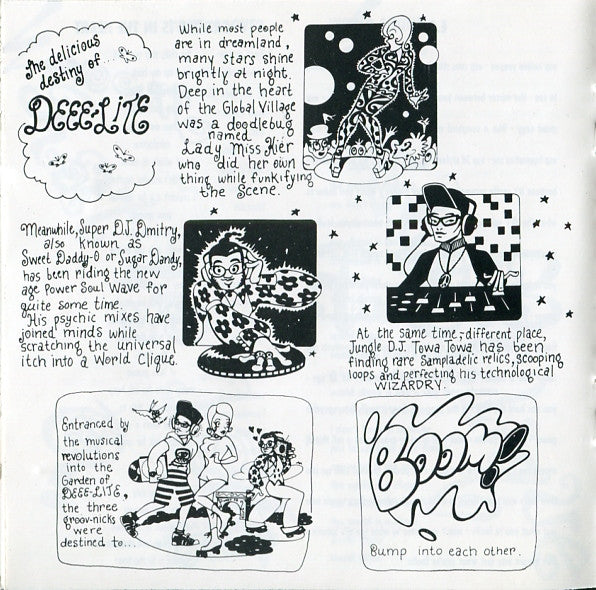 The delicious
destiny of...
DEEE-LITE
While most people
are in dreamland,
many stars shine
brightly at night.
Deep in the heart
of the Global Village
was a doodlebug
named
Lady Miss Kier
who did her own
thing while funkifying
the scene.
Meanwhile, Super DJ Dmitry,
also known as
Sweet Daddy-O or Sugar Dandy,
has been riding the new
age Power Soul Wave for
quite some time.
His psychic mixes have
joined minds while
scratching the universal
itch into a World Clique.
At the same time, different place,
Jungle D.J. Towa Towa has been
finding rare Sampladelic relics, scooping
loops and perfecting his technological
WIZARDRY.
Entranced by
the musical
revolutions
into the
Garden of
DEEE-LITE,
the three
groov-nicks
were
destined to...
BOOM!
Bump into each other.